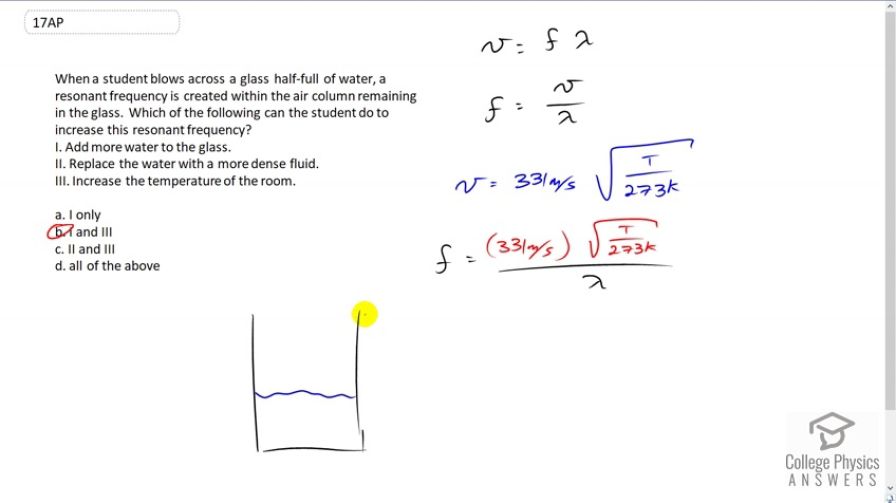 17AP
When a student blows across a glass half-full of water, a
resonant frequency is created within the air column remaining
in the glass. Which of the following can the student do to
increase this resonant frequency?
I. Add more water to the glass.
II. Replace the water with a more dense fluid.
III. Increase the temperature of the room.
a. I only
b. I and III
c. II and III
d. all of the above
v = f λ
f = v / λ
v = 331 m/s √(T / 273K)
f = (331 m/s) √(T / 273K) / λ
College Physics
ANSWERS